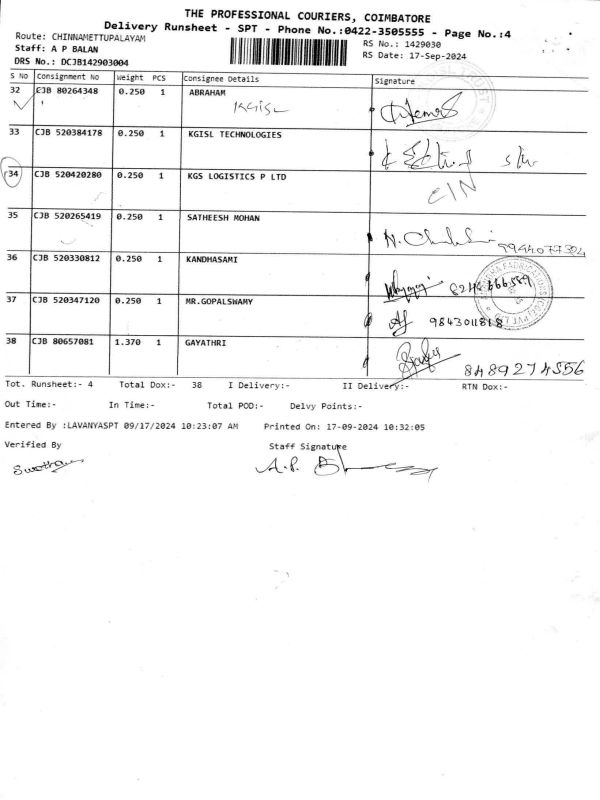 THE PROFESSIONAL COURIERS, COIMBATORE
Delivery Runsheet - SPT - Phone No.:0422-3505555 - Page No.:4
Route: CHINNAMETTUPALAYAM RS No.: 1429030
Staff: A P BALAN RS Date: 17-Sep-2024
DRS No.: DCJB142903004
S No Consignment No Weight PCS Consignee Details Signature
32 CJB 80264348 0.250 1 ABRAHAM
KGISL
33 CJB 520384178 0.250 1 KGISL TECHNOLOGIES
34 CJB 520420280 0.250 1 KGS LOGISTICS P LTD
CIN
35 CJB 520265419 0.250 1 SATHEESH MOHAN
9944077304
36 CJB 520330812 0.250 1 KANDHASAMI
37 CJB 520347120 0.250 1 MR.GOPALSWAMY
9843011818
38 CJB 80657081 1.370 1 GAYATHRI
8489274556
Tot. Runsheet:- 4 Total Dox:- 38 I Delivery:- II Delivery:- RTN Dox:-
Out Time:- In Time:- Total POD:- Delvy Points:-
Entered By :LAVANYASPT 09/17/2024 10:23:07 AM Printed On: 17-09-2024 10:32:05
Verified By Staff Signature
A.P.